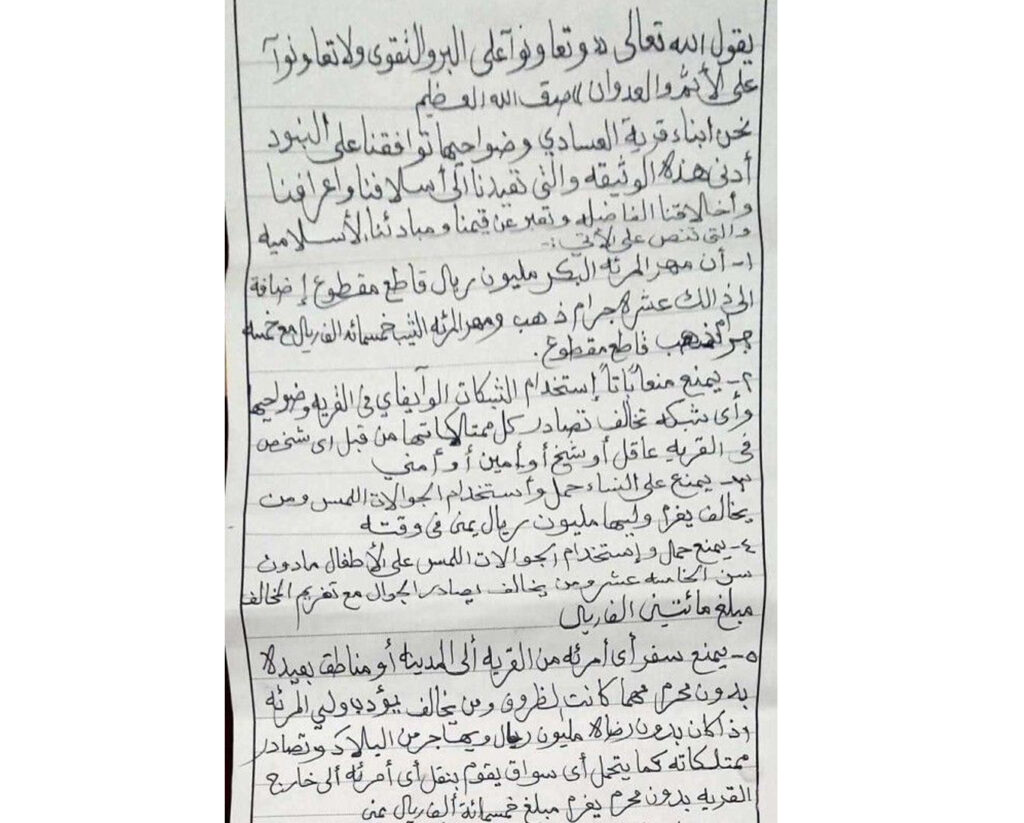 يقول الله تعالى «وتعاونوآ على البر والتقوى ولا تعاونوآ
على الأثم والعدوان» صدق الله العظيم
نحن ابناء قرية العسادي وضواحيها توافقنا على البنود
أدنى هذه الوثيقه والتي تعيدنا الى أسلافنا واعرافنا
وأخلاقنا الفاضله وتعبر عن قيمنا ومبادئنا الأسلاميه
والتي تنص على الأتي :-
١- أن مهر المرئه البكر مليون ريال قاطع مقطوع إضافة
الى ذالك عشره جرام ذهب ومهر المرئه الثيب خمسمائه الف ريال مع خمسه
جرام ذهب قاطع مقطوع.
٢- يمنع منعاً باتاً إستخدام الشبكات الوآيفاي في القريه وضواحيها
وأي شبكه تخالف تصادر كل ممتلكاتها من قبل اى شخص
في القريه عاقل أو شيخ أو أمين أو أمني
٣- يمنع على النساء حمل وأستخدام الجوالات اللمس ومن
يخالف يغرم وليها مليون ريال يمني في وقته
٤- يمنع حمل وإستخدام الجوالات اللمس على الأطفال مادون
سن الخامسه عشر ومن يخالف يصادر الجوال مع تغريم المخالف
مبلغ مائتين الف ريال
٥- يمنع سفر أى أمرئه من القريه ألى المدينه أو مناطق بعيده
بدون محرم مهما كانت لظروف ومن يخالف يؤدب ولي المرئه
وذا كان بدون رضاه مليون ريال ويهاجر من البلاد وتصادر
ممتلكاته كما يتحمل أى سواق يقوم بنقل أى أمرئه ألى خارج
القريه بدون محرم يغرم مبلغ خمسمائة ألف ريال يمني